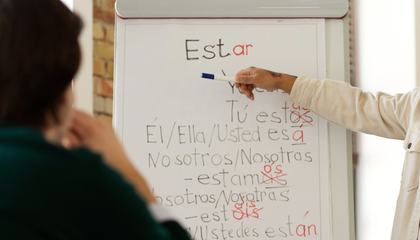 Estar
Tú estás
Él/Ella/Usted está
Nosotros/Nosotras
-estamos
Nosotros/Nosotras
-est
Ustedes están